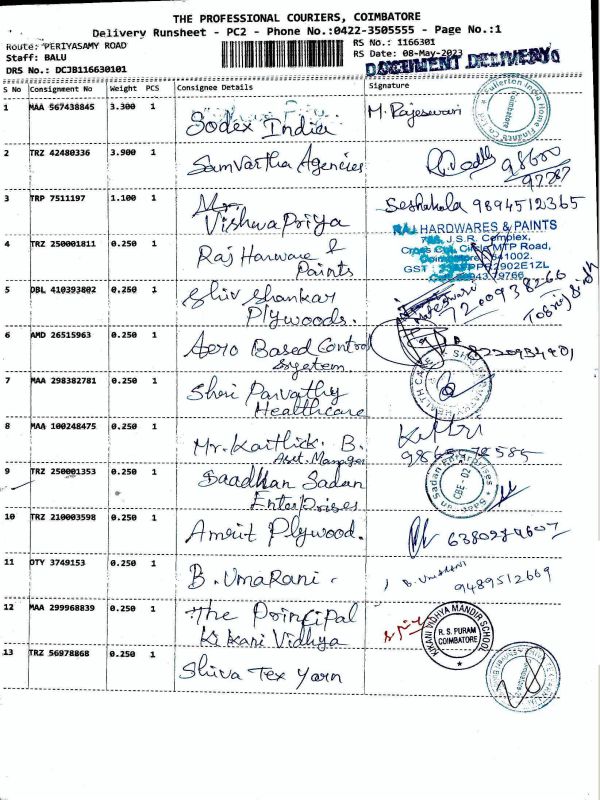 THE PROFESSIONAL COURIERS, COIMBATORE
Delivery Runsheet - PC2 - Phone No.:0422-3505555 - Page No.:1
Route: PERIYASAMY ROAD
RS No.: 1166301
Staff: BALU
RS Date: 08-May-2023
DOCUMENT DELIVERY
DRS No.: DCJB116630101
S No Consignment No Weight PCS Consignee Details Signature
1 MAA 567438845 3.300 1 Sodex India M. Rajeswari
Fullerton India Home Finance Co Coimbatore
2 TRZ 42480336 3.900 1 Samvartha Agencies 98600
97287
3 TRP 7511197 1.100 1 Mrs. Seshakala 9894512365
VishwaPriya
RAJ HARDWARES & PAINTS
J.S.R. Complex,
Cross Cut, Circle MTP Road,
Coimbatore 641002.
4 TRZ 250001811 0.250 1 Raj Harware & GST 2902E1ZL
Paints
5 DBL 410393802 0.250 1 Shiv Shankar 7200938266
Plywoods.
6 AMD 26515963 0.250 1 Aero Based Control
System
7 MAA 298382781 0.250 1 Shri Parvathy
Healthcare
8 MAA 100248475 0.250 1 Mr. Kartlick. B.
Aset. Manager
9 TRZ 250001353 0.250 1 Saadhan Sadan
Enterprises
Saadhan Sadan Enterprises CBE - 02
10 TRZ 210003598 0.250 1 Amrit Plywood. 6380274607
11 OTY 3749153 0.250 1 B. UmaRani. B. UMARANI
9489512669
12 MAA 299968839 0.250 1 The Principal
Kikani Vidhya
KIKANI VIDHYA MANDIR SCHOOL
R.S. PURAM
COIMBATORE
13 TRZ 56978868 0.250 1 Shiva Tex Yarn